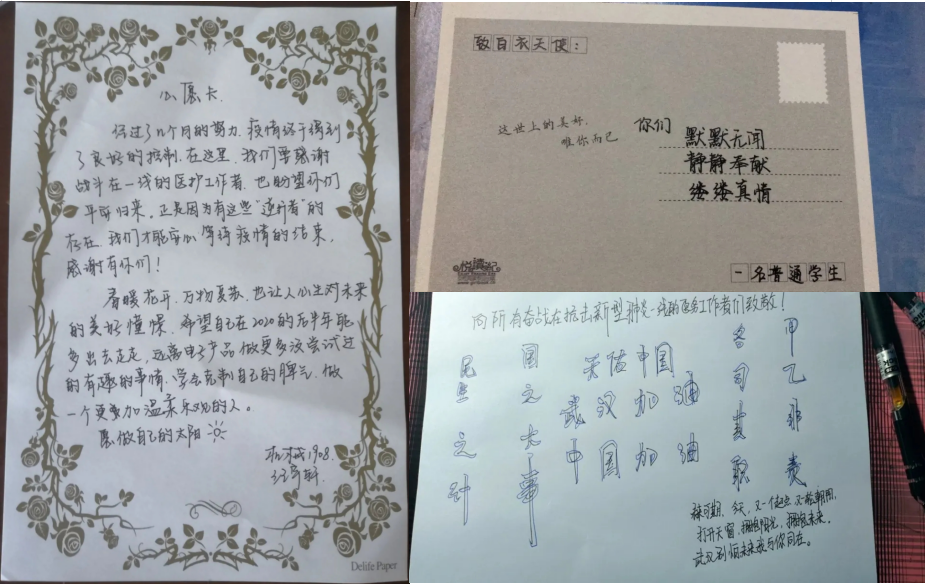 心愿卡
经过了几个月的努力,疫情终于得到
了良好的控制.在这里,我们要感谢
战斗在一线的医护工作者,也盼望你们
平安归来。正是因为有这些"逆行者"的
存在,我们才能安心等待疫情的结束,
感谢有你们!
春暖花开,万物复苏,也让人心生对未来
的美好憧憬。希望自己在2020的后半年能
多出去走走,远离电子产品做更多没尝试过
的有趣的事情,学会克制自己的脾气,做
一个更加温柔乐观的人。
愿做自己的太阳
机械1908.
Delife Paper
致白衣天使:
这世上的美好,
唯你而已
你们
默默无闻
静静奉献
缕缕真情
悦读记
一名普通学生
向所有奋战在抗击新型肺炎一线的医务工作者们致敬!
昆 国 天佑中国 各 甲
之 武汉加油 司 乙
之 大 中国加油 其 非
计 事 职 类
今天,又一个起点,又一轮朝阳,
打开天窗,拥抱阳光,拥抱未来。
武汉别怕未来我与你同在。